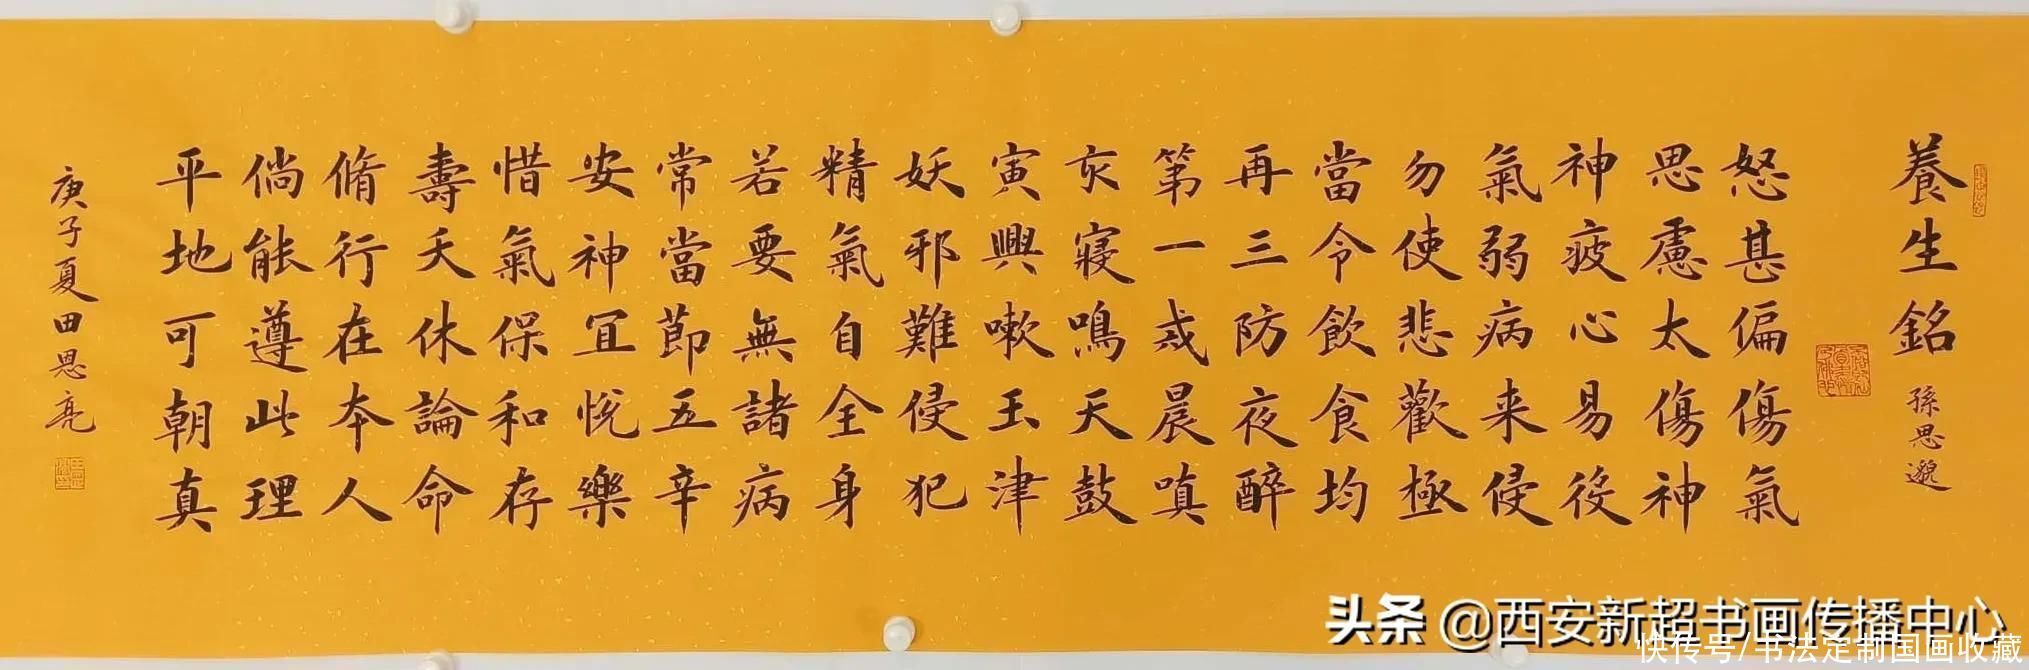 養生銘
孫思邈
怒甚偏傷氣
思慮太傷神
神疲心易役
氣弱病来侵
勿使悲歡極
當令飲食均
再三防夜醉
第一戒晨嗔
亥寢鳴天鼓
寅興嗽玉津
妖邪難侵犯
精氣自全身
若要無諸病
常當節五辛
安神宜悅樂
惜氣保和存
壽夭休論命
脩行在本人
倘能遵此理
平地可朝真
庚子夏田恩亮
头条 @西安新超书画传播中心
快传号/书法定制国画收藏